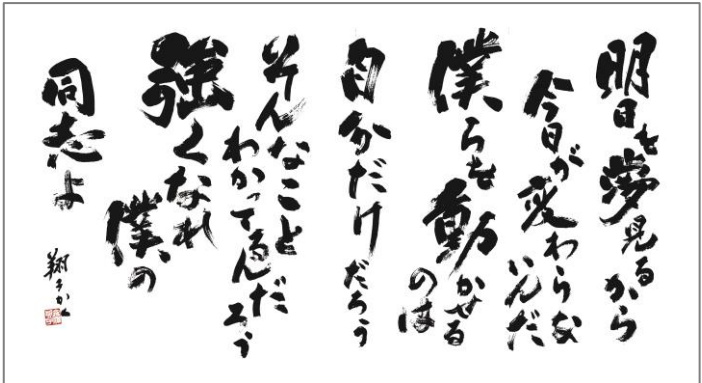 明日を夢見るから
今日が変わらな
いんだ
僕らを動かせる
のは
自分だけだろう
そんなこと
わかってるんだ
ろう
強くなれ
僕の
同志よ
翔子かく